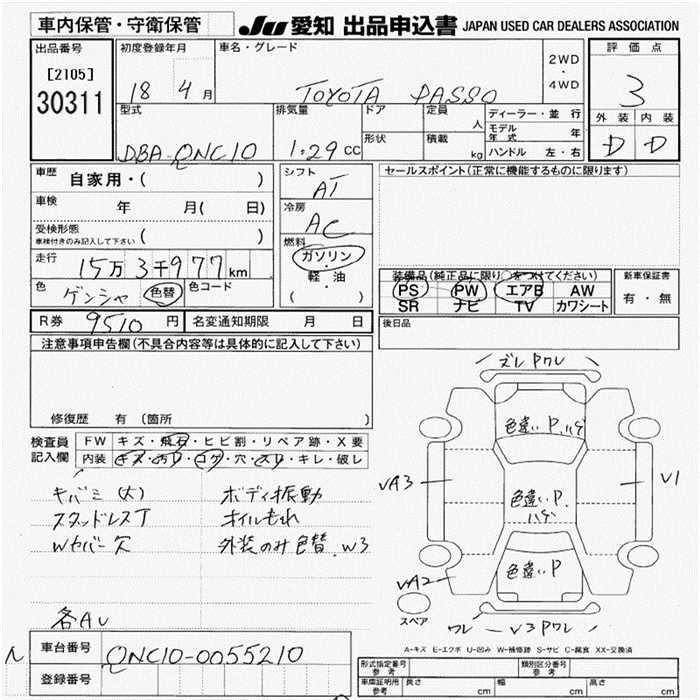 車内保管・守衛保管
JU 愛知 出品申込書 JAPAN USED CAR DEALERS ASSOCIATION
出品番号
[2105]
30311
初度登録年月
18 4 月
車名・グレード
TOYOTA PASSO
2WD
・
4WD
評価点
3
外装 内装
D D
型式
DBA-QNC10
排気量
1.29 cc
ドア
形状
定員
人
積載
kg
ディーラー・並行
モデル年式 年
ハンドル 左・右
車歴
自家用・( )
車検
年 月( 日)
受検形態
車検付きのみ記入して下さい ( )
走行
15万 3千977 km
色
ゲンシャ 色替 色コード
シフト
AT
冷房
AC
燃料
ガソリン
・
軽・油
( )
セールスポイント(正常に機能するものに限ります)
装備品(純正品に限り○をつけてください)
PS PW エアB AW
SR ナビ TV カワシート
新車保証書
有・無
R券 9510 円 名変通知期限 月 日
後日品
注意事項申告欄(不具合内容等は具体的に記入して下さい)
修復歴 有 (箇所 )
検査員
記入欄
FW キズ・飛石・ヒビ割・リペア跡・X要
内装 キズ・汚レ・コゲ・穴・スレ・キレ・破レ
キバミ(大)
スタッドレスT
Wセバー欠
各AU
ボディ振動
オイルもれ
外装のみ色替 W3
ズレ Pワレ
色違いP.ハゲ
色違いP.
ハゲ
色違いP
VA3
V1
VA2
スペア
ワレ V3 Pワレ
A-キズ E-エクボ U-凹み W-補修跡 S-サビ C-腐食 XX-交換済
車台番号
QNC10-0055210
登録番号
形式指定番号
参考
類別区分番号
参考
車庫証明用
参考
長さ cm 幅 cm 高さ cm